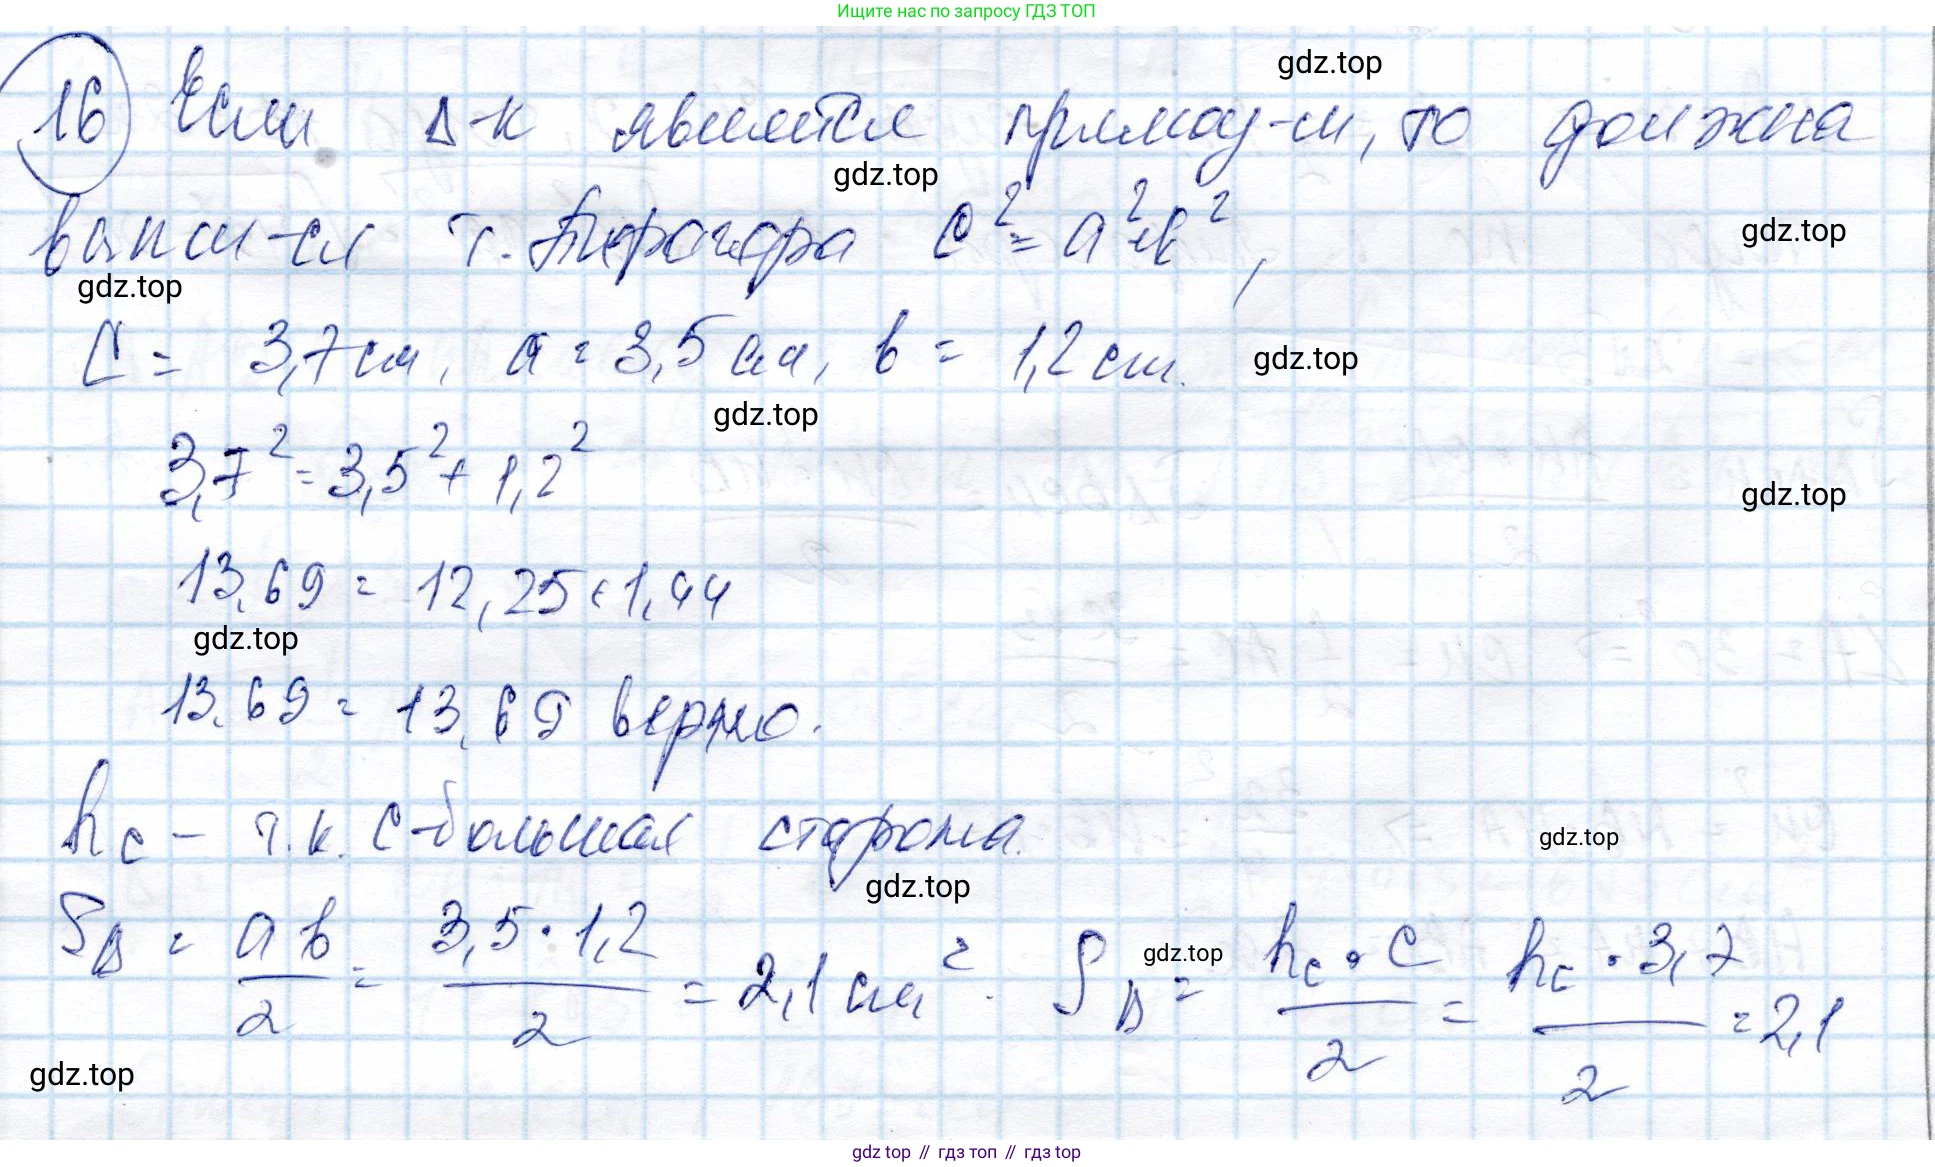 Ищите нас по запросу ГДЗ ТОП
gdz.top
16 Если Δ-к является прямоу-м, то должна
gdz.top
вып-ся т. Пифагора c² = a² + b²,
gdz.top
gdz.top
C = 3,7 см, a = 3,5 см, b = 1,2 см.
gdz.top
gdz.top
3,7² = 3,5² + 1,2²
gdz.top
13,69 = 12,25 + 1,44
gdz.top
13,69 = 13,69 верно.
h_c – т.к. c-большая сторона.
gdz.top
gdz.top
S_Δ = ab/2 = 3,5·1,2/2 = 2,1 см². S_Δ = h_c·c/2 = h_c·3,7/2 = 2,1
gdz.top
gdz.top
gdz.top // гдз топ // гдз top